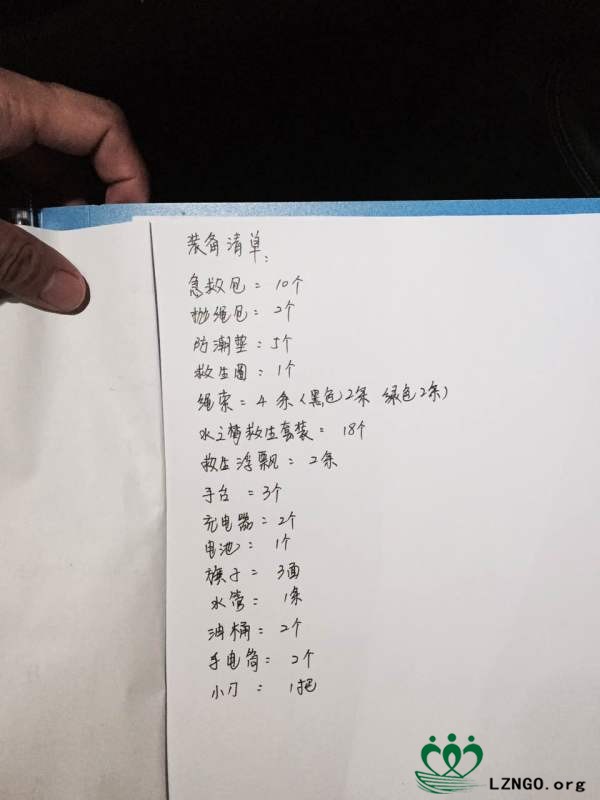 装备清单:
急救包 = 10个
抛绳包 = 2个
防潮垫 = 5个
救生圈 = 1个
绳索 = 4条(黑色2条 绿色2条)
水立精救生套装 = 18个
救生浮飘 = 2条
手台 = 3个
充电器 = 2个
电池 = 1个
旗子 = 3面
水管 = 1条
油桶 = 2个
手电筒 = 2个
小刀 = 1把
LZNGO.org